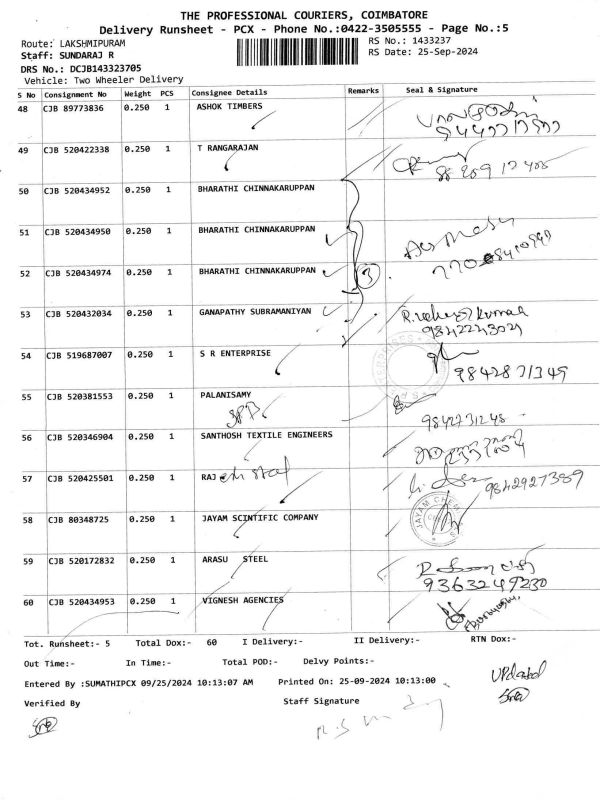 THE PROFESSIONAL COURIERS, COIMBATORE
Delivery Runsheet - PCX - Phone No.:0422-3505555 - Page No.:5
Route: LAKSHMIPURAM RS No.: 1433237
Staff: SUNDARAJ R RS Date: 25-Sep-2024
DRS No.: DCJB143323705
Vehicle: Two Wheeler Delivery
S No Consignment No Weight PCS Consignee Details Remarks Seal & Signature
48 CJB 89773836 0.250 1 ASHOK TIMBERS
49 CJB 520422338 0.250 1 T RANGARAJAN
50 CJB 520434952 0.250 1 BHARATHI CHINNAKARUPPAN
51 CJB 520434950 0.250 1 BHARATHI CHINNAKARUPPAN
52 CJB 520434974 0.250 1 BHARATHI CHINNAKARUPPAN 3
53 CJB 520432034 0.250 1 GANAPATHY SUBRAMANIYAN
54 CJB 519687007 0.250 1 S R ENTERPRISE 9842871349
55 CJB 520381553 0.250 1 PALANISAMY
9842731248
56 CJB 520346904 0.250 1 SANTHOSH TEXTILE ENGINEERS
57 CJB 520425501 0.250 1 RAJ 9842927389
58 CJB 80348725 0.250 1 JAYAM SCINTIFIC COMPANY JAYAM CHEM
59 CJB 520172832 0.250 1 ARASU STEEL
9363249230
60 CJB 520434953 0.250 1 VIGNESH AGENCIES
Tot. Runsheet:- 5 Total Dox:- 60 I Delivery:- II Delivery:- RTN Dox:-
Out Time:- In Time:- Total POD:- Delvy Points:-
Entered By :SUMATHIPCX 09/25/2024 10:13:07 AM Printed On: 25-09-2024 10:13:00
UPdated
Verified By Staff Signature